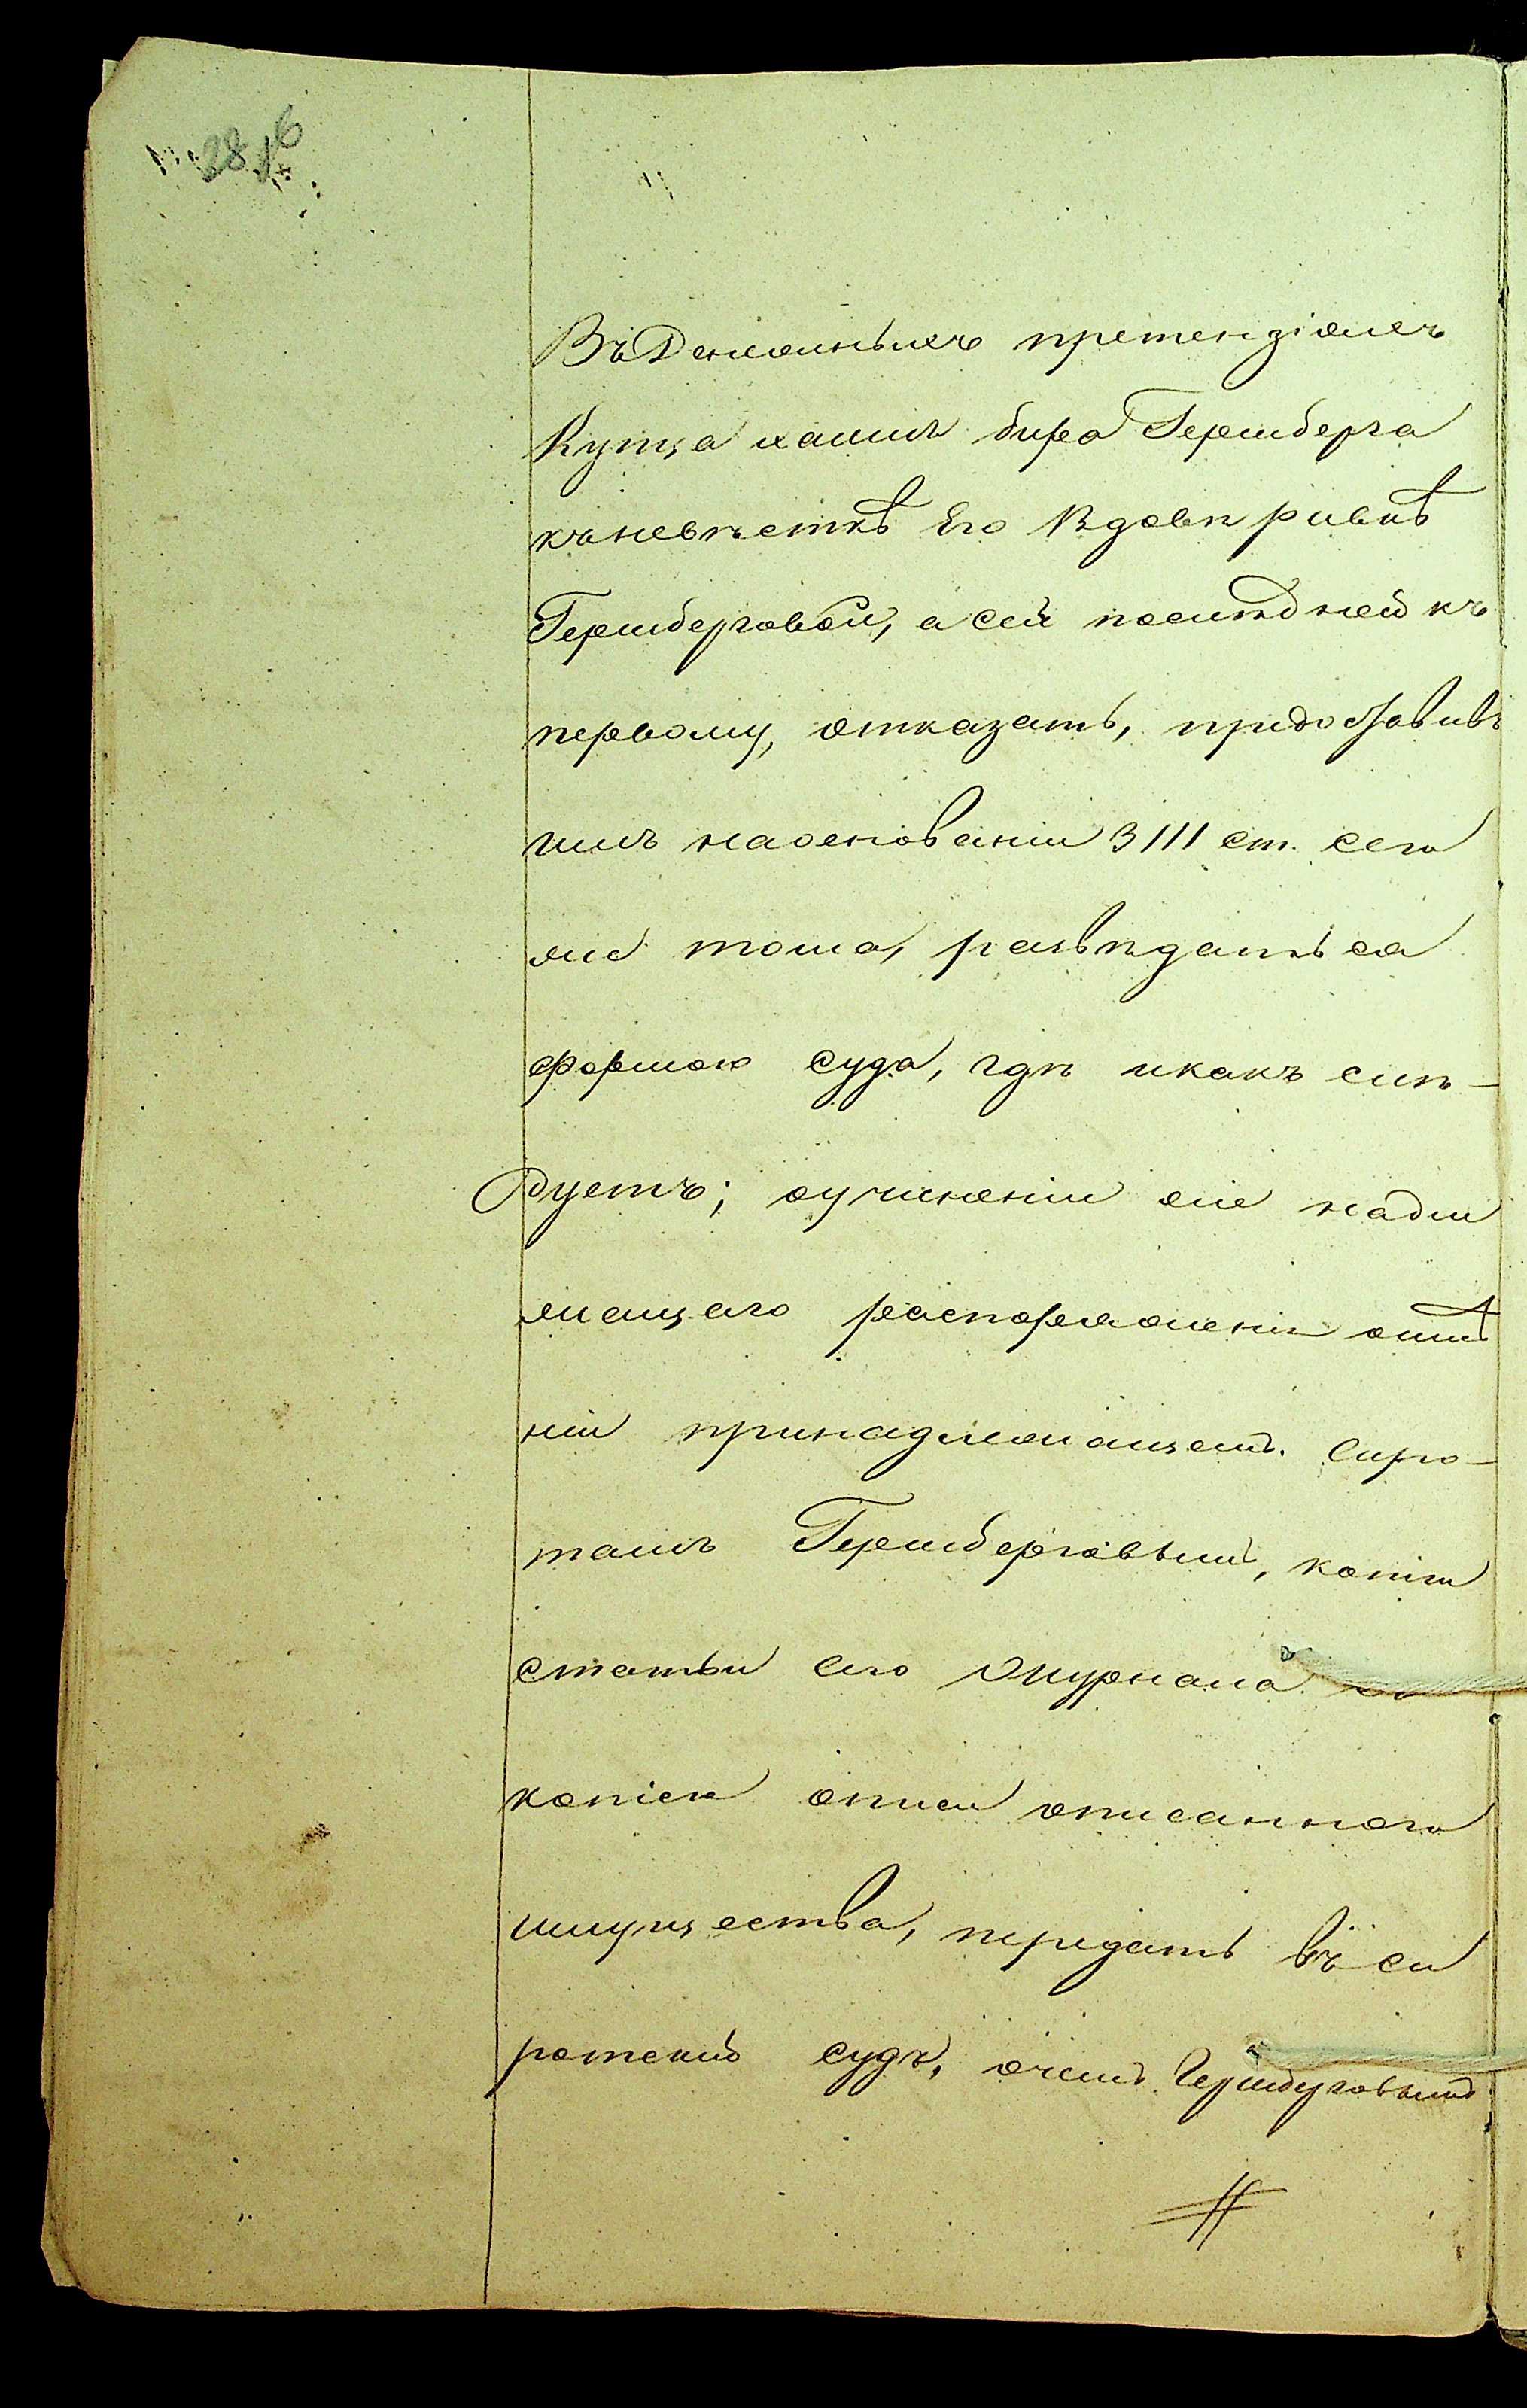 Въ Денежныхъ претензіяхъ
Купца хаима бера Гершберга
къ невѣсткѣ Его Вдовѣ ривкѣ
Гершберговой, а сей послѣдней къ
первому, отказать, предоставивъ
имъ на основаніи 3111 ст. сего
же тома, развѣдаться
формою суда, гдѣ и какъ слѣ-
дуетъ; о учиненіи же надле
жащаго распоряженія о имѣ
ніи принадлежащемъ сиро-
тамъ Гершберговымъ, копію
статьи сего журнала
копіею описи описаннаго
имущества, передать въ си
ротскій судъ, о чемъ Гершберговымъ